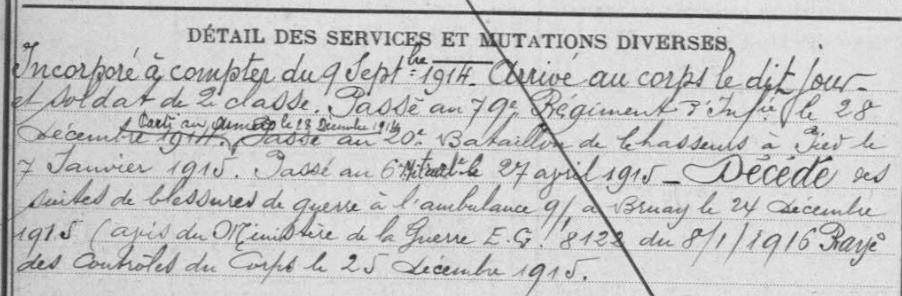 DÉTAIL DES SERVICES ET MUTATIONS DIVERSES.
Incorporé à compter du 9 Septbre 1914. Arrivé au corps le dit jour
et soldat de 2e classe. Passé au 79e Régiment d'Infie le 28
Parti aux armées le 28 Décembre 1914
Décembre 1914. Passé au 20e Bataillon de Chasseurs à Pied le
7 Janvier 1915. Passé au 6e le 27 april 1915 _ Décédé des
suites de blessures de guerre à l'ambulance 9/ à Bruay le 24 Décembre
1915 (avis du Ministère de la Guerre E.G. 8122 du 8/1/1916 Rayé
des contrôles du Corps le 25 Décembre 1915.